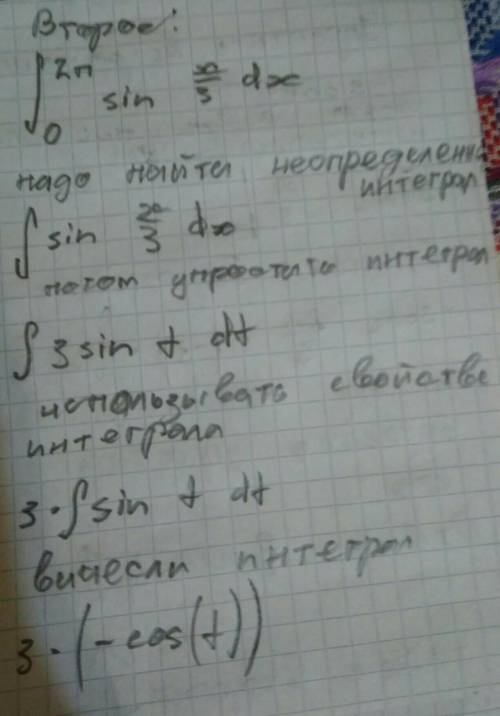 Второе:
∫₀²ᴨ sin x/3 dx
надо найти неопределенн
интеграл
∫ sin x/3 dx
потом упростить интеграл
∫ 3 sin t dt
использывать свойство
интеграла
3 · ∫ sin t dt
вычесли интеграл
3 · (-cos(t))